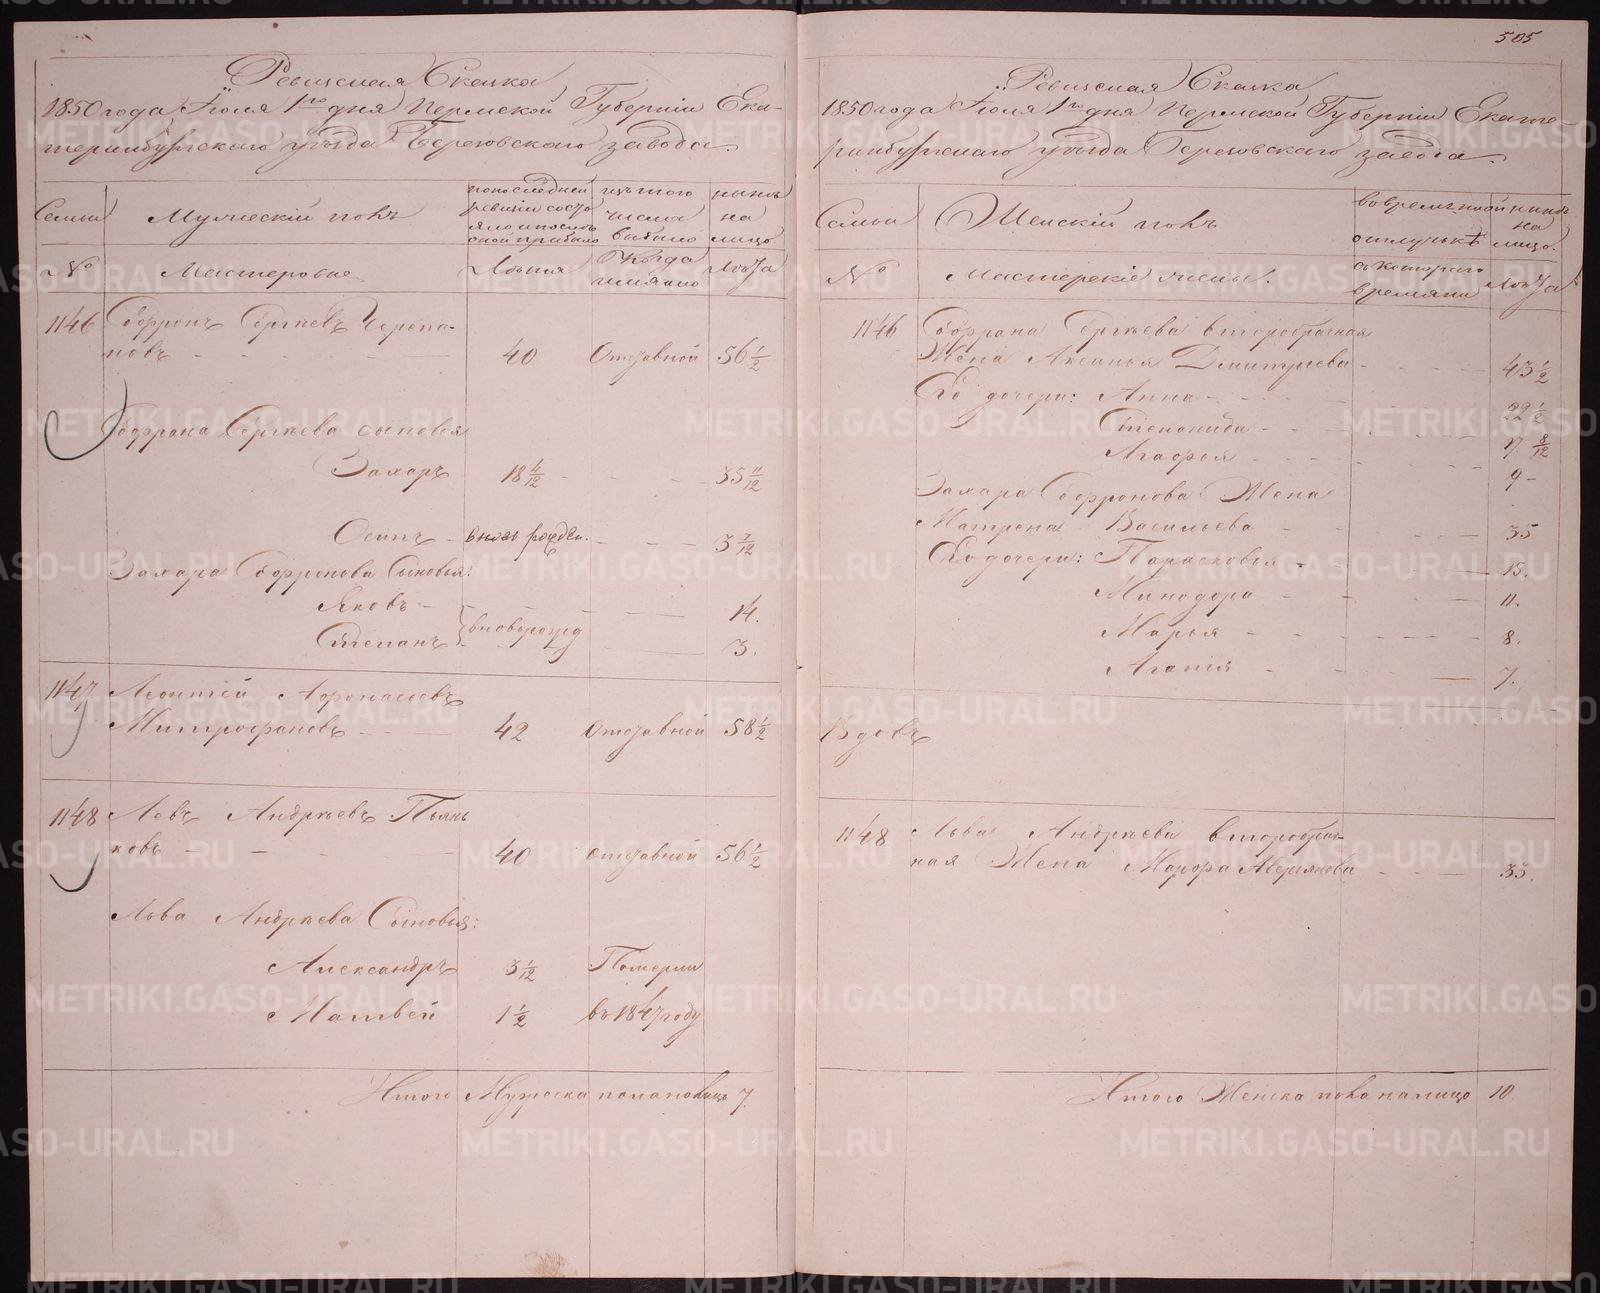 Ревизская Сказка
1850 года Іюля 1го дня Пермской Губерніи Ека-
теринбургскаго уѣзда Березовскаго завода.
Семьи
Мужескій полъ
по последней
ревизіи состо
яло и послѣ
оной прибыло
изъ того
числа
выбыло
нынѣ
на
лицо
№
Мастеровые
Лѣта
Когда
именно
Лѣта
1146 Софронъ Сергѣевъ Черепа-
новъ - - - 40 Отставной 56 1/2
Софрона Сергѣева сыновья
Захаръ 18 4/12 - - - 35 11/12
Осипъ - вновь рожден. - - - 3 7/12
Захара Софронова Сыновья:
Яковъ - 14.
вновьрожд
Степанъ 3.
1147 Леонтей Афонасьевъ
Митрофановъ - - 42 Отставной 58 1/2
1148 Левъ Андрѣевъ Пьян
ковъ - - - 40 отставной 56 1/2
Льва Андрѣева Сыновья:
Александръ 3 1/12 Померли
Матвей 1 1/2 въ 1847 году
Итого Мужеска пола налицо 7.
505
Ревизская Сказка
1850 года Іюля 1го дня Пермской Губерніи Екате-
ринбургскаго уѣзда Березовскаго завода.
Семьи
Женскій полъ
во временной
отлучкѣ
нынѣ
на
лицо.
№
Мастерскіе жены.
съ котораго
времяни
Лѣта
1146 Софрона Сергѣева второбрачная
Жена Аксинья Дмитриева - - - 43 1/2
Его дочери: Анна - - - 22 1/2
Степанида - - - 17 8/12
Агафья - - - 9 -
Захара Софронова Жена
Матрена Васильева - - 35
Его дочери: Парасковья - - - 15.
Минодора - - - 11.
Марья - - - 8.
Агапія - - 7.
Вдовъ
1148 Льва Андрѣева второбрач-
ная Жена Аверьянова - - - 33.
Итого Женска пола налицо 10
METRIKI.GASO-URAL.RU